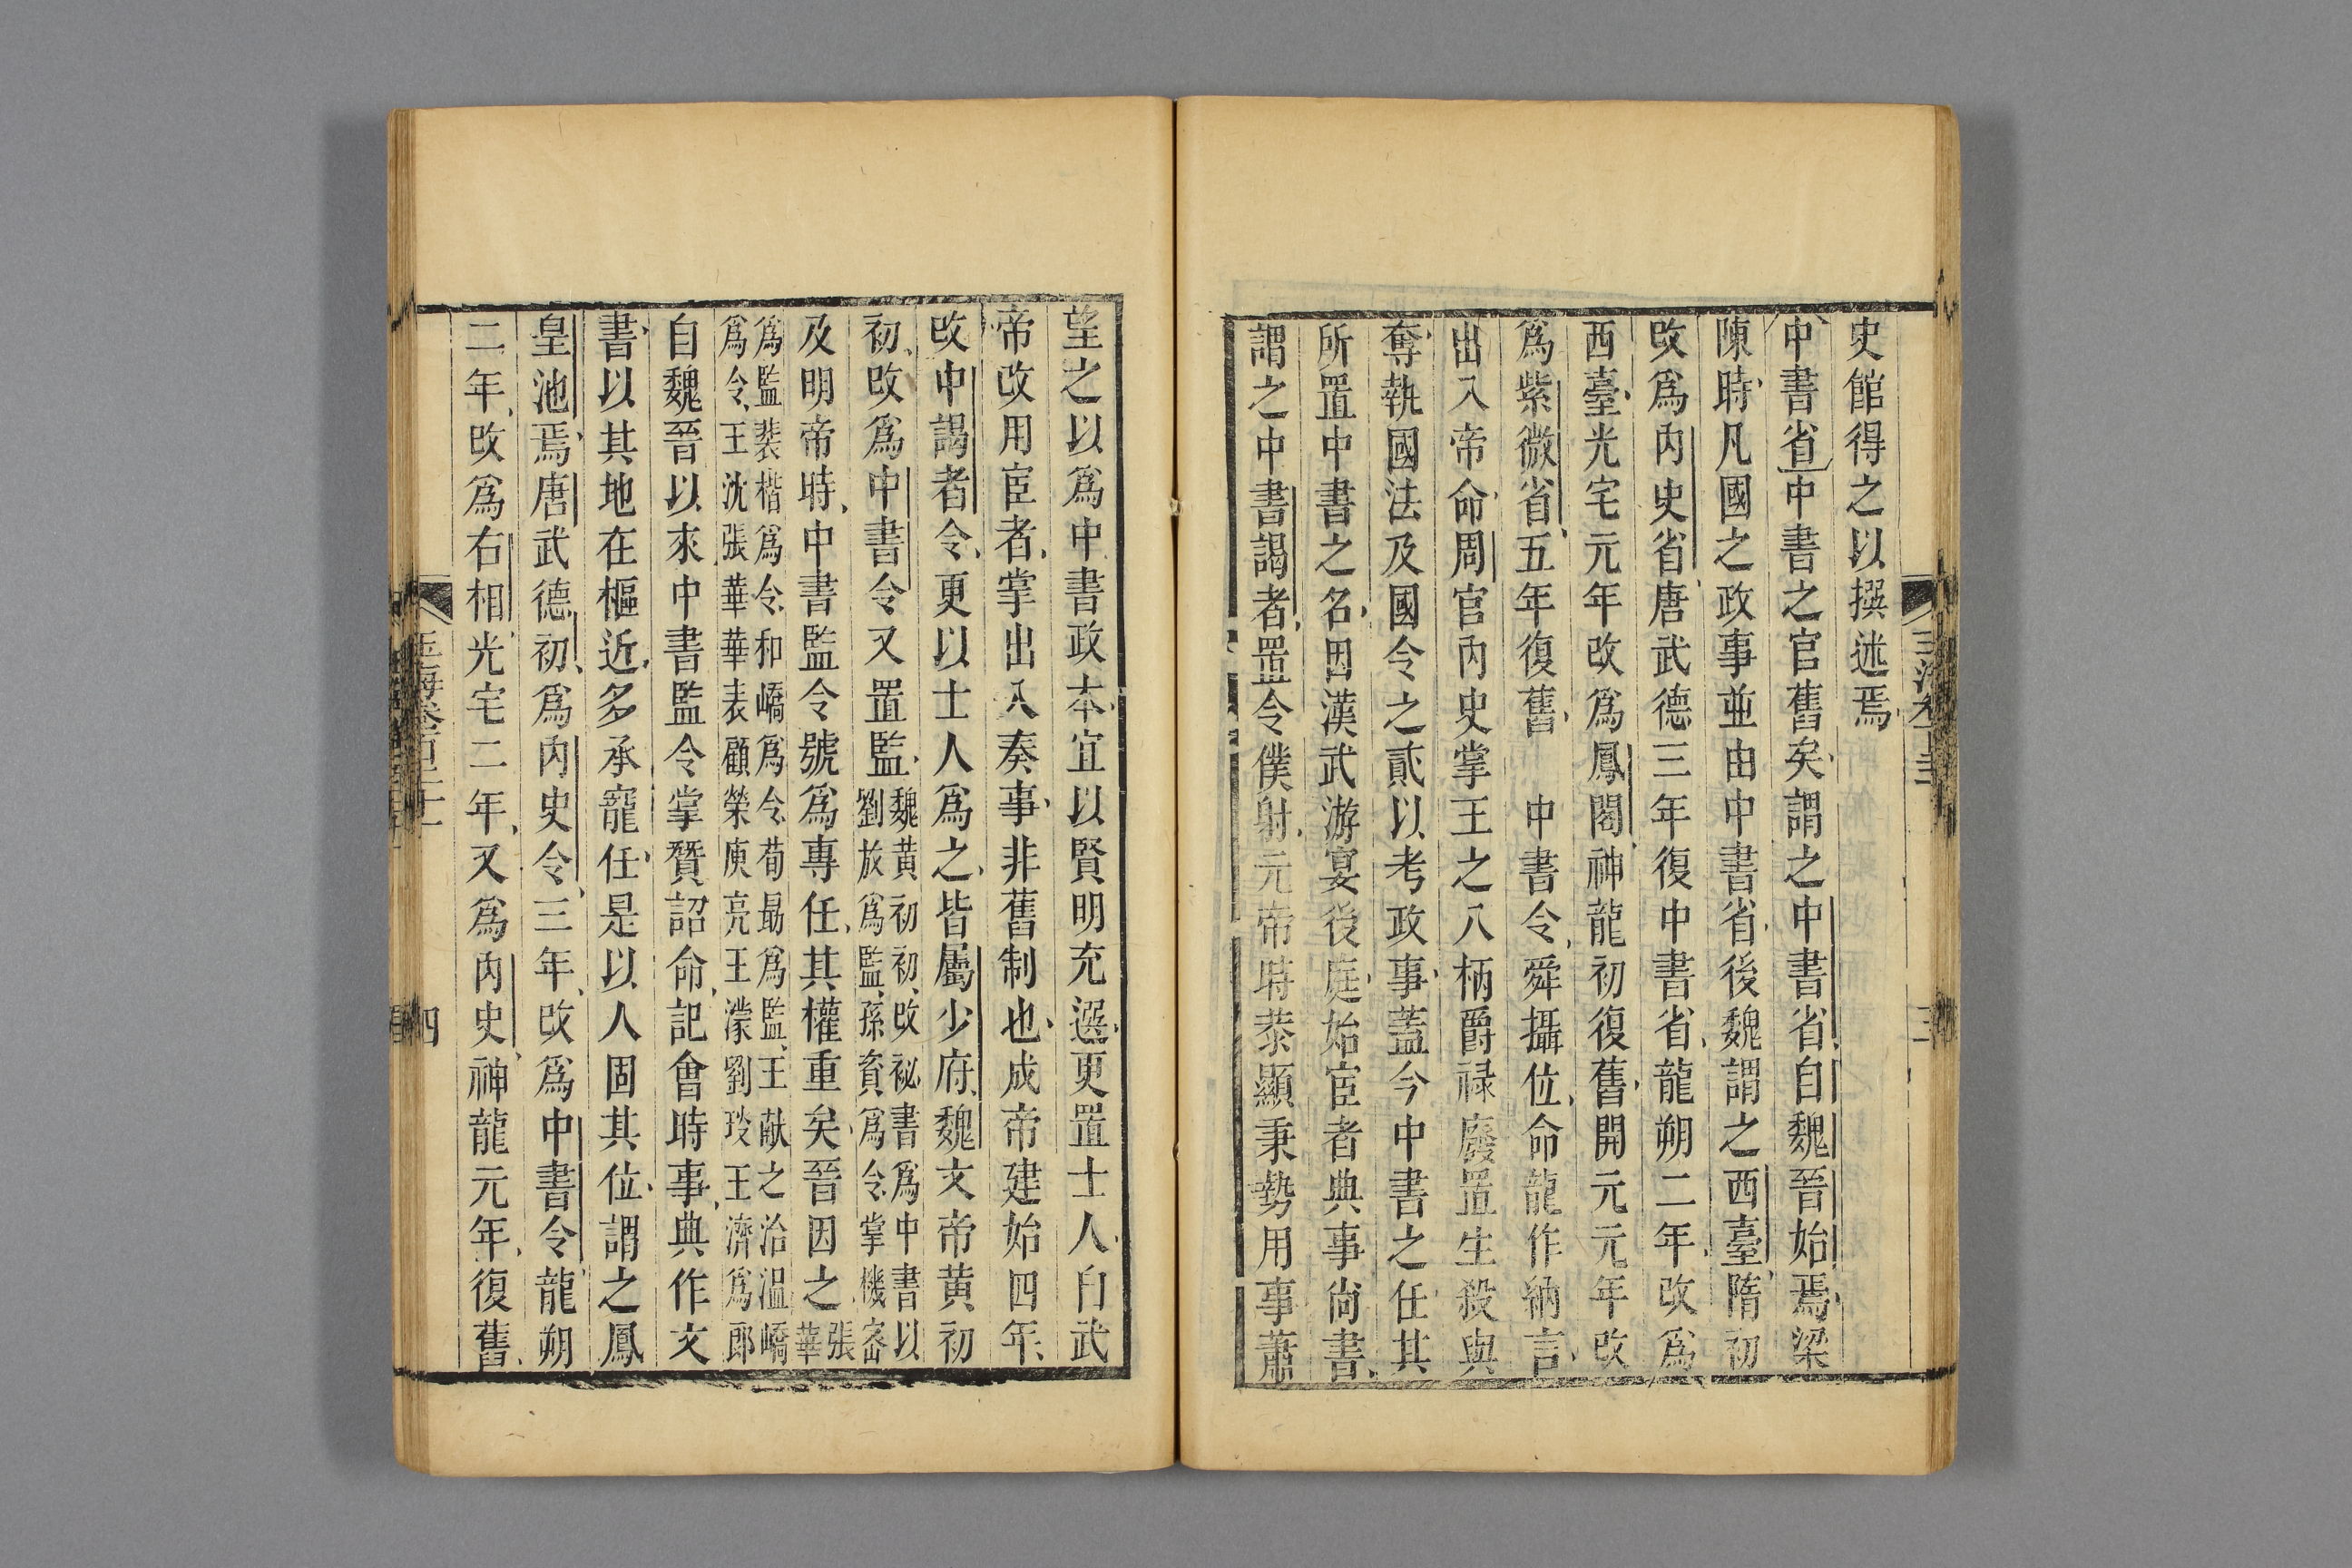 史館得之以撰述焉
中書省中書之官舊矣謂之中書省自魏晉始焉梁
陳時凡國之政事並由中書省後魏謂之西臺隋初
改爲內史省唐武德三年復中書省龍朔二年改爲
西臺光宅元年改爲鳳閣神龍初復舊開元元年改
爲紫微省五年復舊　中書令舜攝位命龍作納言
出入帝命周官內史掌王之八柄爵祿廢置生殺與
奪執國法及國令之貳以考政事蓋今中書之任其
所置中書之名因漢武游宴後庭始宦者典事尚書
謂之中書謁者置令僕射元帝時恭顯秉勢用事蕭
望之以爲中書政本宜以賢明充選更置士人自武
帝改用宦者掌出入奏事非舊制也成帝建始四年
改中謁者令更以士人爲之皆屬少府魏文帝黃初
初改爲中書令又置監魏黃初初改祕書爲中書以
劉放爲監孫資爲令掌機密
及明帝時中書監令號爲專任其權重矣晉因之張
華
爲監裴楷爲令和嶠爲令荀勗爲監王献之洽溫嶠
爲令王沈張華華表顧榮庾亮王濛劉琰王濟爲郎
自魏晉以來中書監令掌贊詔命記會時事典作文
書以其地在樞近多承寵任是以人固其位謂之鳳
皇池焉唐武德初爲內史令三年改爲中書令龍朔
二年改爲右相光宅二年又爲內史神龍元年復舊
玉海卷百二十一
四